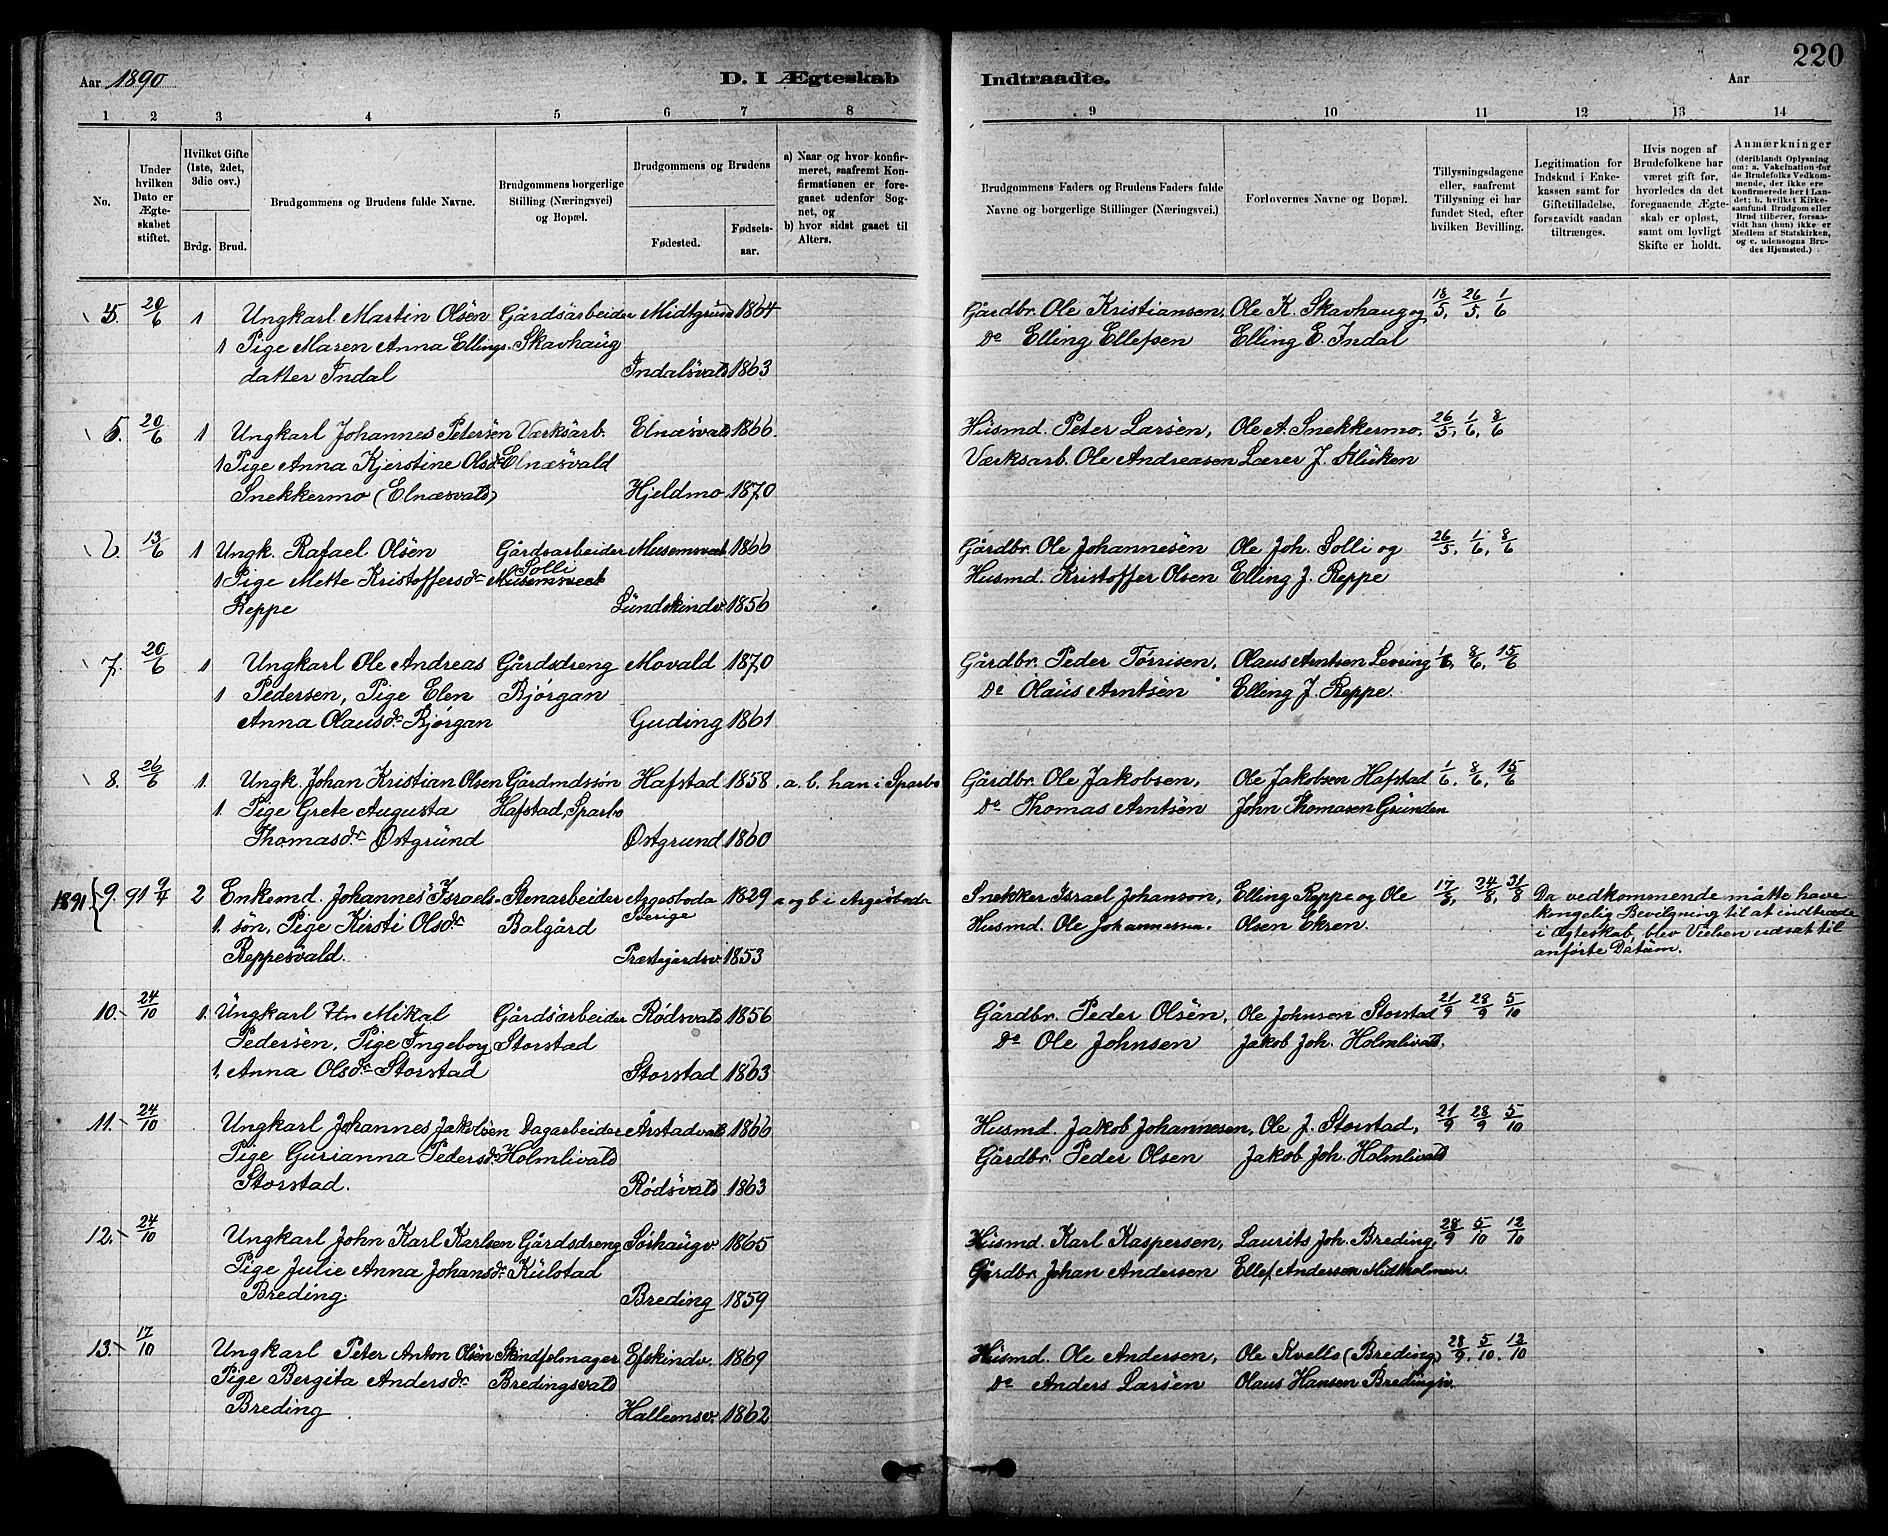 220
Aar 1890
D. I Ægteskab Indtraadte.
Aar
1 2 3 4 5 6 7 8 9 10 11 12 13 14
No.
Under hvilken Dato er Ægteskabet stiftet.
Hvilket Gifte (1ste, 2det, 3die osv.)
Brdg. Brud.
Brudgommens og Brudens fulde Navne.
Brudgommens borgerlige Stilling (Næringsvei) og Bopæl.
Brudgommens og Brudens
Fødested.
Fødselsaar.
a) Naar og hvor konfirmeret, saafremt Konfirmationen er foregaaet udenfor Sognet, og
b) hvor sidst gaaet til Alters.
Brudgommens Faders og Brudens Faders fulde Navne og borgerlige Stillinger (Næringsvei.)
Forlovernes Navne og Bopæl.
Tillysningsdagene eller, saafremt Tillysning ei har fundet Sted, efter hvilken Bevilling.
Legitimation for Indskud i Enkekassen samt for Giftetilladelse, forsaavidt saadan tiltrænges.
Hvis nogen af Brudefolkene har været gift før, hvorledes da det foregaaende Ægteskab er opløst, samt om lovligt Skifte er holdt.
Anmærkninger
(deriblandt Oplysning om: a. Vakcination for de Brudefolks Vedkommende, der ikke ere konfirmerede her i Landet; b. hvilket Kirkesamfund Brudgom eller Brud tilhører, forsaavidt han (hun) ikke er Medlem af Statskirken, og c. udensogns Brudes Hjemsted.)
5. 20/6 1 Ungkarl Martin Olsen Gårdsarbeider Midtgrund 1864 Gårdbr. Ole Kristiansen, Ole K. Skavhaug og 18/5, 26/5, 1/6
1 Pige Maren Anna Ellings- Skavhaug Do Elling Ellefsen Elling E. Indal
datter Indal Indalsvald 1863
5. 20/6 1 Ungkarl Johannes Petersen Værksarb. Elnæsvald 1866. Husmd. Peter Larsen, Ole A. Snekkermo, 26/5, 1/6, 8/6
1 Pige Anna Kjerstine Olsdr Elnæsvald Værksarb. Ole Andreasen Lærer J. Slücken
Snekkermo (Elnæsvald) Hjeldmo 1870
6. 13/6 1 Ungk. Rafael Olsen Gårdsarbeider Musemsvald 1866 Gårdbr. Ole Johannesen Ole Joh. Solli og 26/5, 1/6, 8/6
1 Pige Mette Kristoffersdr Solli Husmd. Kristoffer Olsen Elling J. Reppe
Reppe Sundskindv. 1856
7. 20/6 1 Ungkarl Ole Andreas Gårdsdreng Movald 1870 Gårdbr. Peder Tørrisen, Olaus Arntsen Levring 1/6, 8/6, 15/6
1 Pedersen, Pige Elen Bjørgan Do Olaus Arntsen Elling J. Reppe.
Anna Olausdr Bjørgan Guding 1861
8. 26/6 1. Ungk. Johan Kristian Olsen Gårdmdssøn Hafstad 1858. a. b. han i Sparbo Gårdbr. Ole Jakobsen, Ole Jakobsen Hafstad 1/6, 8/6, 15/6
1. Pige Grete Augusta Hafstad, Sparbo Do Thomas Arntsen John Thomasen Grunden
Thomasdr Østgrund Østgrund 1860
1891 { 9. 91 9/4 2 Enkemd. Johannes Israels- Stenarbeider Argosboda 1829 a og b i Argosboda Snekker Israel Johanson, Elling Reppe og Ole 17/8, 24/8, 31/8 Da vedkommende måtte have
1. søn, Pige Kirsti Olsdr Balgård Sverige Husmd. Ole Johannessen. Olsen Ekren. kongelig Bevilgning til at indtræde
i Ægteskab, blev Vielsen udsat til
Reppesvald. Præstegårdsv. 1853 anførte Datum.
10. 24/10 1. Ungkarl Mikal Gårdsarbeider Rødsvald 1856 Gårdbr. Peder Olsen, Ole Johnsen Storstad 21/9 28/9 5/10
Pedersen, Pige Ingeborg Storstad Do Ole Johnsen Jakob Joh. Holmlivald.
1. Anna Olsdr Storstad Storstad 1863
11. 24/10 Ungkarl Johannes Jakobsen Dagarbeider Årstadvald 1866 Husmd. Jakob Johannesen, Ole J. Storstad, 21/9 28/9 5/10
Pige Gurianna Pedersdr. Holmlivald Gårdbr. Peder Olsen Jakob Joh. Holmlivald
Storstad. Rødsvald 1863
12. 24/10 Ungkarl John Karl Karlsen Gårdsdreng Sørhaugv. 1865 Husmd. Karl Kaspersen, Laurits Joh. Breding 28/9 5/10 12/10
Pige Julie Anna Johansdr Kulstad Gårdbr. Johan Andersen Ellef Andersen Midtholmen.
Breding. Breding 1859
13. 17/10 Ungkarl Peter Anton Olsen Skindfelmager Efskindv. 1869 Husmd. Ole Andersen, Ole Kvello (Breding) 28/9, 5/10, 12/10
Pige Bergita Andersdr Bredingsvald Do Anders Larsen Olaus Hansen Bredingsv.
Breding Hallemsv. 1862